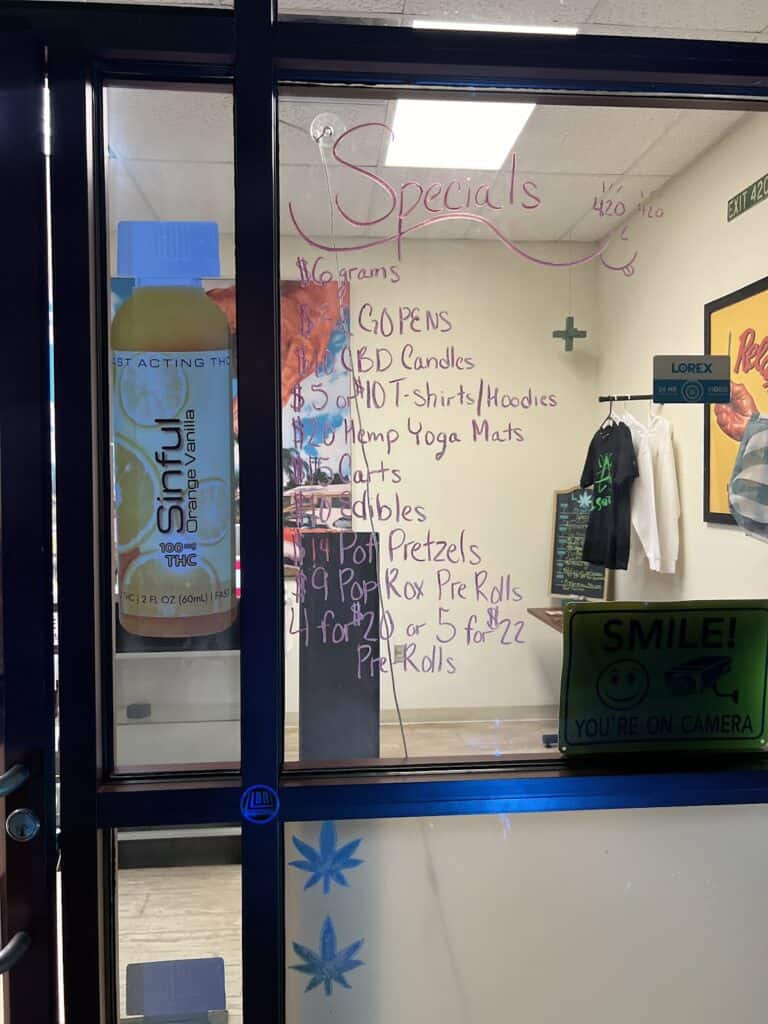 Specials
420 420
EXIT 420
$6 grams
GOPENS
CBD Candles
$5 or $10 T-shirts/Hoodies
Hemp Yoga Mats
Carts
Edibles
$14 Pot Pretzels
$9 Pop Rox Pre Rolls
4 for $20 or 5 for $22
Pre-Rolls
AST ACTING THC
Sinful
Orange Vanilla
100mg
THC
THC | 2 FL OZ (60mL) | FAST
LOREX
24 HR VIDEO
Rel
SMILE!
YOU'RE ON CAMERA